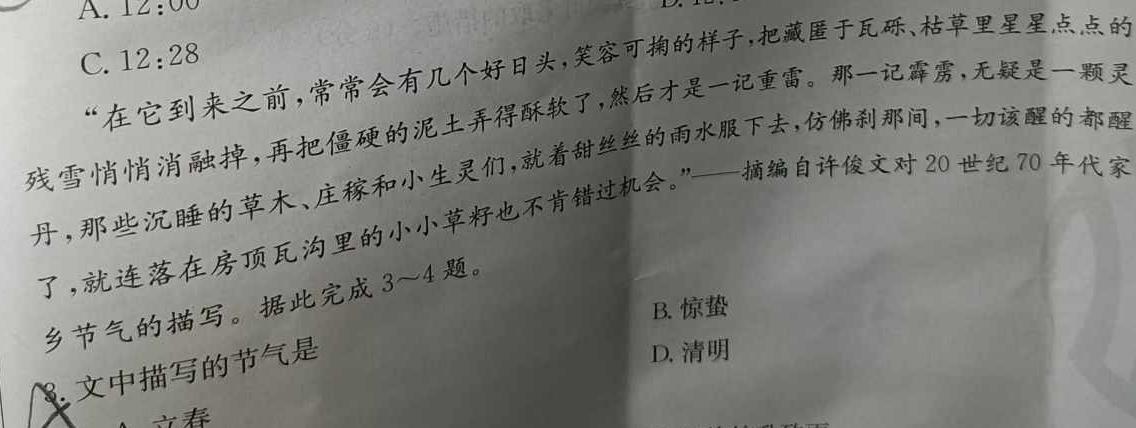 A. 12:00
C. 12:28
“在它到来之前,常常会有几个好日头,笑容可掬的样子,把藏匿于瓦砾、枯草里星星点点的
残雪悄悄消融掉,再把僵硬的泥土弄得酥软了,然后才是一记重雷。那一记霹雳,无疑是一颗灵
丹,那些沉睡的草木、庄稼和小生灵们,就着甜丝丝的雨水服下去,仿佛刹那间,一切该醒的都醒
了,就连落在房顶瓦沟里的小小草籽也不肯错过机会。”——摘编自许俊文对 20 世纪 70 年代家
乡节气的描写。据此完成 3～4 题。
3. 文中描写的节气是
A. 立春
B. 惊蛰
D. 清明